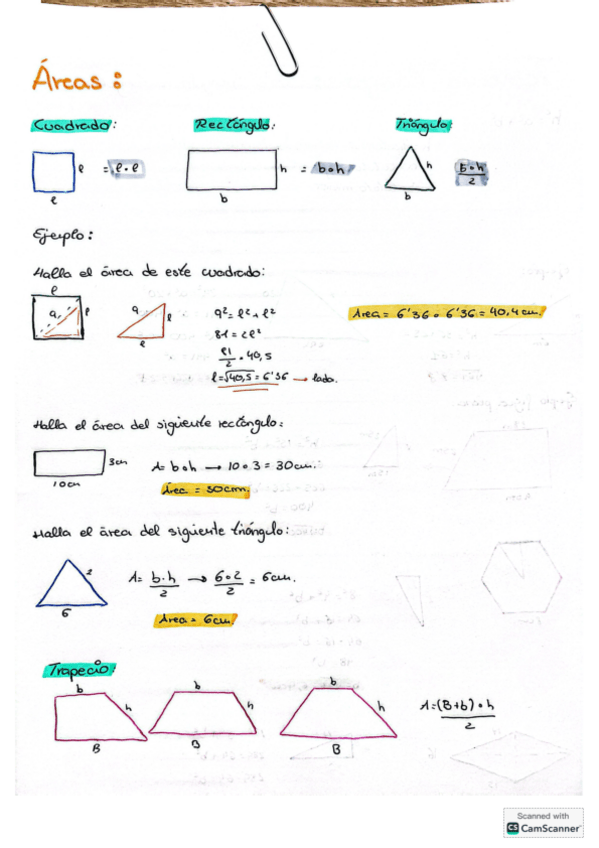 Áreas:
Cuadrado:
Rectángulo:
Triángulo:
l
= l · l
l
h
= b·h
b
h
b·h
2
b
Ejemplo:
Halla el área de este cuadrado:
l
a
l
a
l
l
9² = l² + l²
81 = 2l²
81/2 = 40,5
l = √40,5 = 6'36 → lado.
Área = 6'36 · 6'36 = 40,4 cm.
Halla el área del siguiente rectángulo:
3cm
10cm
A = b·h → 10·3 = 30cm.
Área = 30cm.
Halla el área del siguiente triángulo:
2
6
A = b·h/2 → 6·2/2 = 6cm.
Área = 6cm.
Trapecio:
b
h
B
b
h
B
b
h
B
A = (B+b)·h
2
Scanned with
CS CamScanner